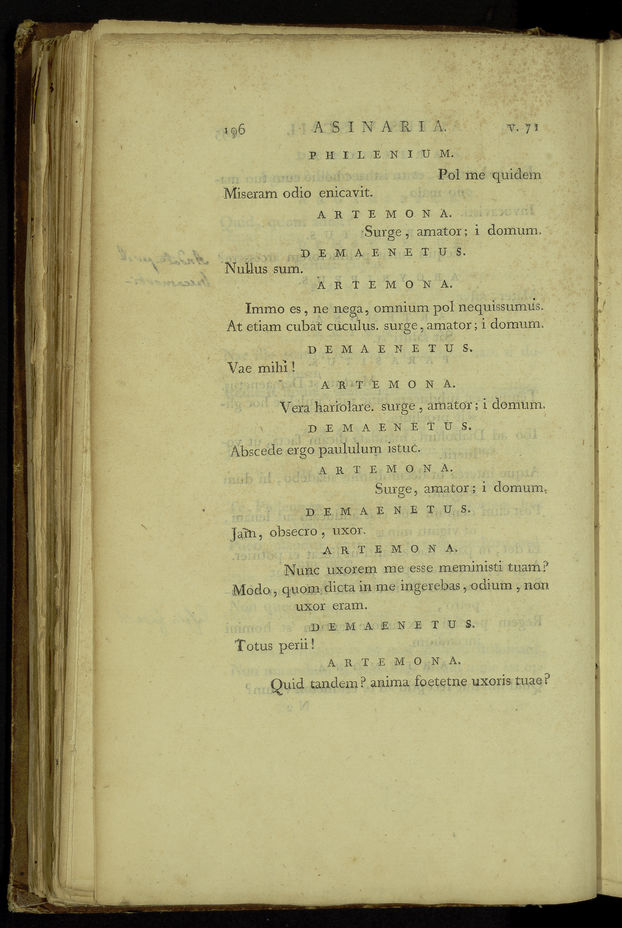 196 ASINARIA. v. 71
PHILENIUM.
Pol me quidem
Miseram odio enicavit.
ARTEMONA.
Surge, amator; i domum.
DEMAENETUS.
Nullus sum.
ARTEMONA.
Immo es, ne nega, omnium pol nequissumus.
At etiam cubat cuculus. surge, amator; i domum.
DEMAENETUS.
Vae mihi!
ARTEMONA.
Vera hariolare. surge, amator; i domum.
DEMAENETUS.
Abscede ergo paululum istuc.
ARTEMONA.
Surge, amator; i domum.
DEMAENETUS.
Jam, obsecro, uxor.
ARTEMONA.
Nunc uxorem me esse meministi tuam?
Modo, quom dicta in me ingerebas, odium, non
uxor eram.
DEMAENETUS.
Totus perii!
ARTEMONA.
Quid tandem? anima foetetne uxoris tuae?